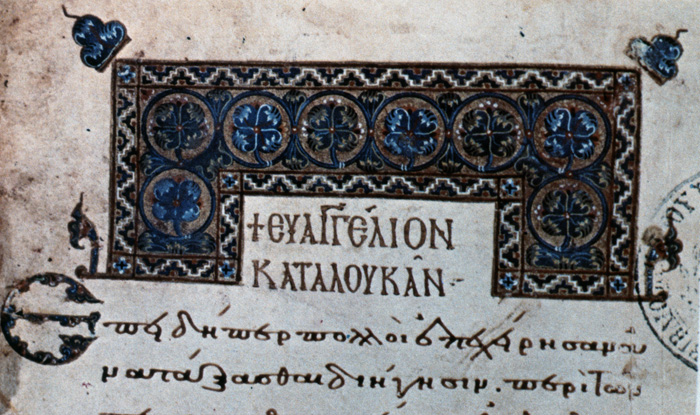 +ΕΥΑΓΓΕΛΙΟΝ
ΚΑΤΑ ΛΟΥΚΑΝ
Ἐπειδήπερ πολλοὶ ἐπεχείρησαν ἀ
νατάξασθαι διήγησιν. περὶ τῶν